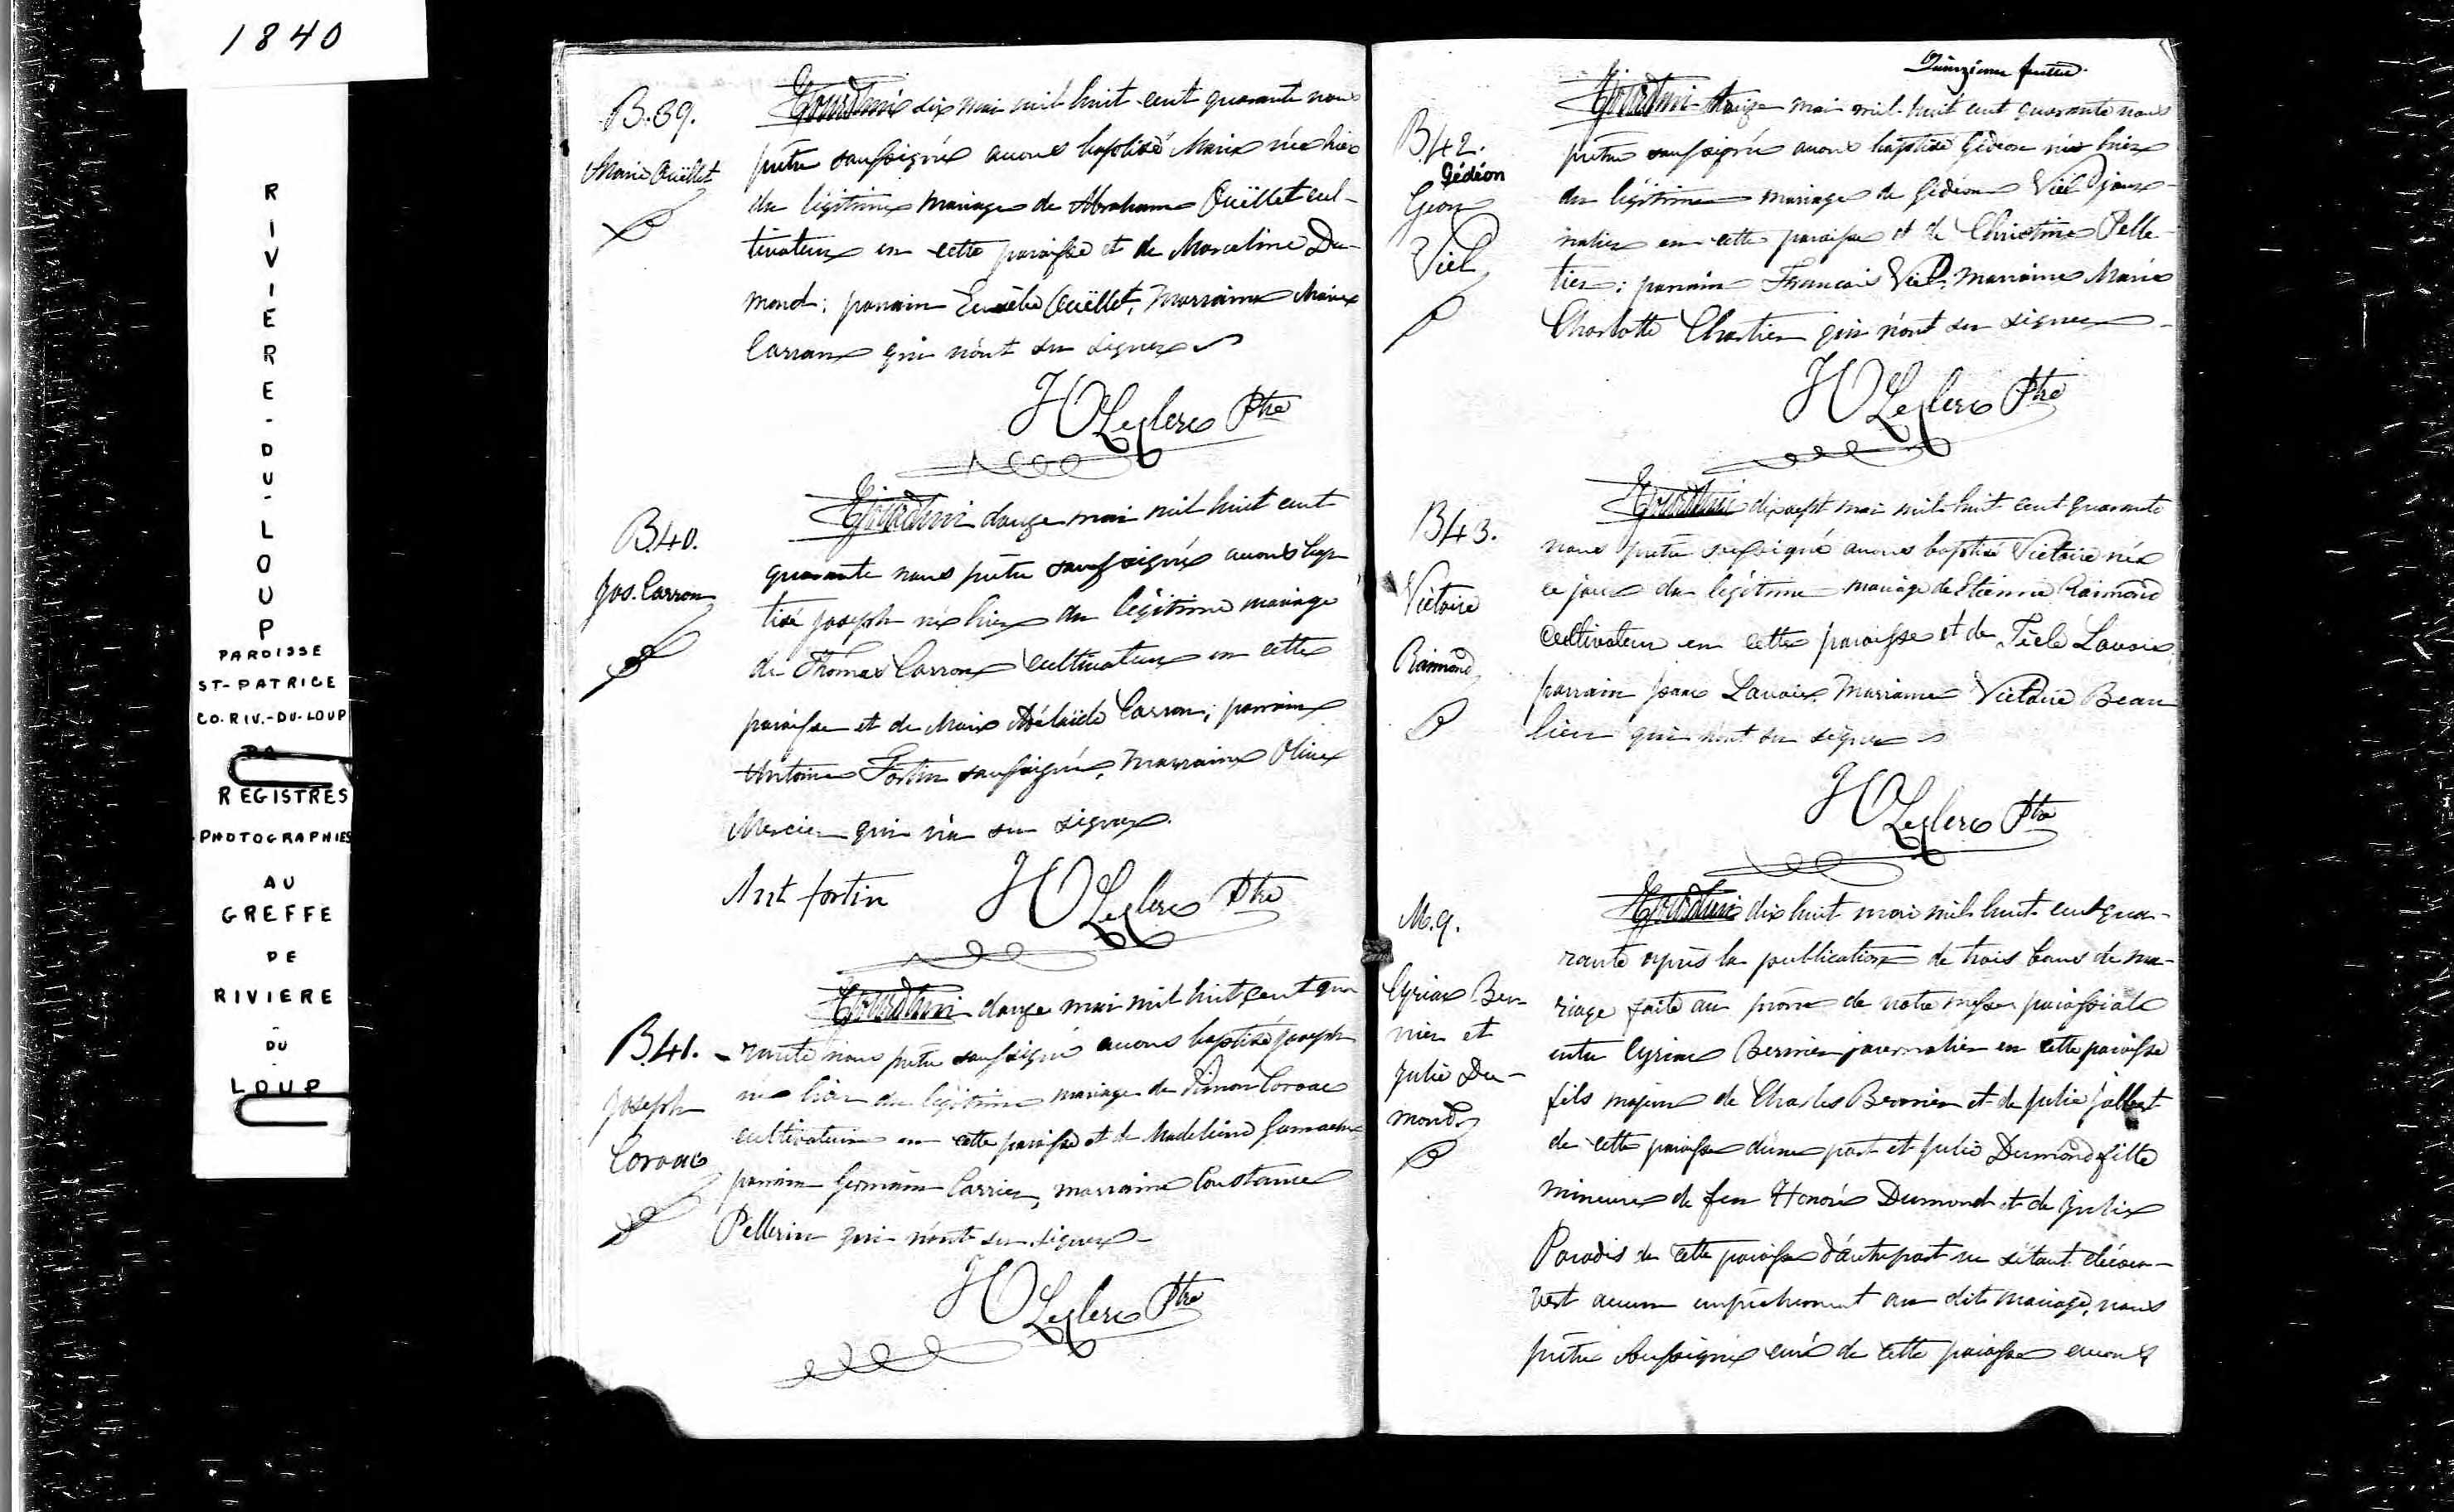 1840
RIVIERE-DU-LOUP
PAROISSE
ST-PATRICE
CO. RIV.-DU-LOUP
REGISTRES
PHOTOGRAPHIES
AU
GREFFE
DE
RIVIERE
-
DU
-
LOUP
B.39.
Marie Ouëllet
dix mai mil huit cent quarante nous
prêtre soussigné avons baptisé Marie née hier
du légitime mariage de Abraham Ouëllet cul-
tivateur en cette paroisse et de Marceline Du-
mond; parrain Ouëllet, Marraine Marie
Carron qui n'ont su signer
HLeclerc Ptre
B.40.
Jos. Carron
douze mai mil huit cent
quarante nous prêtre soussigné avons bap-
tisé Joseph né hier du légitime mariage
de Thomas Carron cultivateur en cette
paroisse et de Marie Adélaïde Carron; parrain
Antoine Fortin soussigné, Marraine Olive
Mercier qui n'a su signer.
Ant fortin HLeclerc Ptre
B.41.
Joseph
douze mai mil huit cent qua-
rante nous prêtre soussigné avons baptisé Joseph
né hier du légitime mariage de Simon
cultivateur en cette paroisse et de Madeleine
parrain Germain Carrier, marraine Constance
Pellerin qui n'ont su signer-
HLeclerc Ptre
B42.
Gédéon
Viel
mai mil huit cent quarante nous
prêtre soussigné avons baptisé Gédéon né hier
du légitime mariage de Gédéon Viel jour-
nalier en cette paroisse et de Christine Pelle-
tier; parrain Francois Viel, Marraine Marie
Charlotte Chartier qui n'ont su signer-
HLeclerc Ptre
B43.
Victoire
Raimond
dixsept mai mil huit cent quarante
nous prêtre soussigné avons baptisé Victoire née
ce jour du légitime mariage de Etienne Raimond
cultivateur en cette paroisse et de Lavoie,
parrain Lavoie, Marraine Victoire Beau
lieu qui n'ont su signer
HLeclerc Ptre
M.9.
Cyriac Ber-
nier et
Julie Du-
mond
dix huit mai mil huit cent qua-
rante après la publication de trois bans de ma-
riage faite au prône de notre messe paroissiale
entre Cyriac Bernier journalier en cette paroisse
fils majeur de Charles Bernier et de Julie Jalbert
de cette paroisse d'une part et Julie Dumond fille
mineure de feu Honoré Dumond et de Julie
Paradis de cette paroisse d'autre part ne s'étant découv-
vert aucun empêchement au dit mariage, nous
prêtre soussigné curé de cette paroisse avons